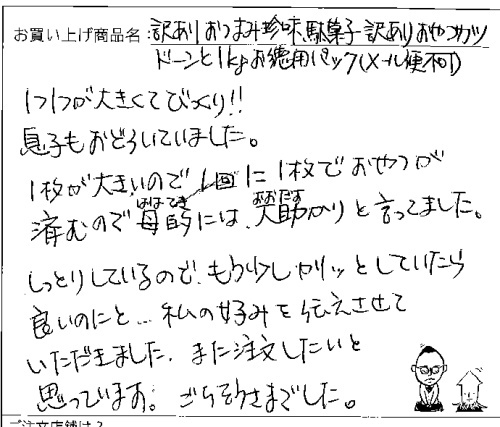 お買い上げ商品名：訳あり おつまみ珍味 駄菓子 訳ありおやつカツ
ドーンと1kgお徳用パック(メール便不可)
1つ1つが大きくてびっくり!!
息子もおどろいていました。
1枚が大きいので 1回に1枚でおやつが
済むので母的には、大助かりと言ってました。
ははてき おおだす
しっとりしているので、もう少しカリッとしていたら
良いのにと… 私の好みを伝えさせて
いただきました。また注文したいと
思っています。ごちそうさまでした。
ご注文店舗は？